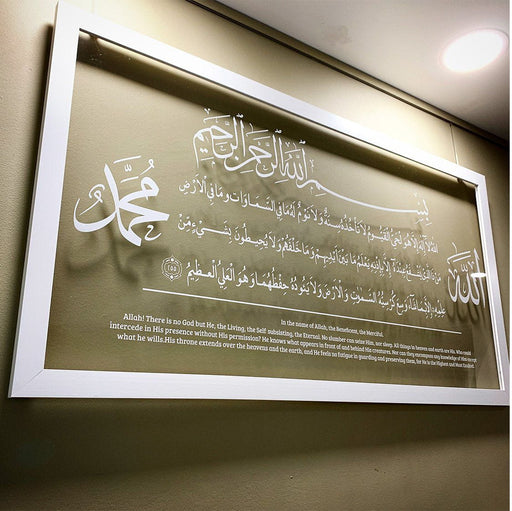 بِسْمِ ٱللَّهِ ٱلرَّحْمَٰنِ ٱلرَّحِيمِ
الله
محمد
اللَّهُ لَا إِلَٰهَ إِلَّا هُوَ الْحَيُّ الْقَيُّومُ لَا تَأْخُذُهُ سِنَةٌ وَلَا نَوْمٌ لَهُ مَا فِي السَّمَاوَاتِ وَمَا فِي الْأَرْضِ
مَنْ ذَا الَّذِي يَشْفَعُ عِنْدَهُ إِلَّا بِإِذْنِهِ يَعْلَمُ مَا بَيْنَ أَيْدِيهِمْ وَمَا خَلْفَهُمْ وَلَا يُحِيطُونَ بِشَيْءٍ مِّنْ
عِلْمِهِ إِلَّا بِمَا شَاءَ وَسِعَ كُرْسِيُّهُ السَّمَوَاتِ وَالْأَرْضَ وَلَا يَئُودُهُ حِفْظُهُمَا وَهُوَ الْعَلِيُّ الْعَظِيمُ
In the name of Allah, the Beneficent, the Merciful.
Allah! There is no God but He, the Living, the Self subsisting, the Eternal. No slumber can seize Him, nor sleep. All things in heaven and earth are His. Who could
intercede in His presence without His permission? He knows what appears in front of and behind His creatures. Nor can they encompass any knowledge of Him except
what he wills.His throne extends over the heavens and the earth, and He feels no fatigue in guarding and preserving them, for He is the Highest and Most Exalted.